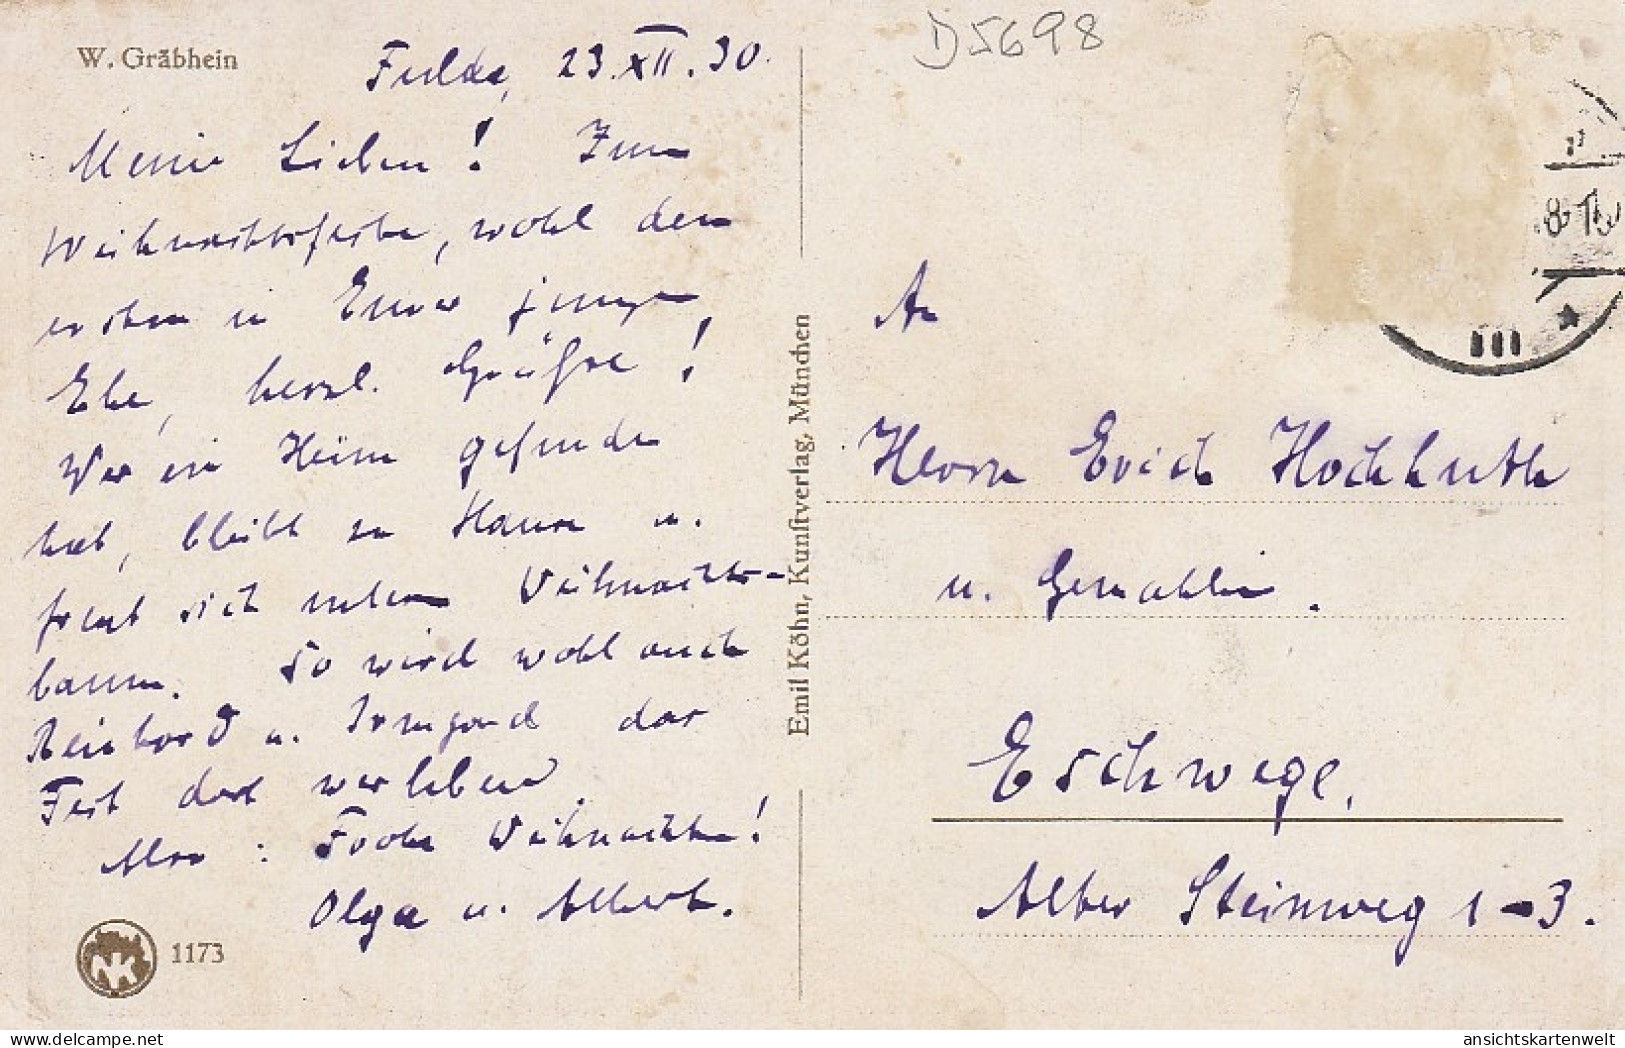 W. Gräbhein
Fulda, 23.XII.30.
D5698
Meine Lieben! Zum
Weihnachtsfeste, wohl dem
ersten in Eurer jungen
Ehe, herzl. Grüße!
Wer ein Heim gefunden
hat, bleibt zu Hause u.
freut sich unterm Weihnachts-
baum. So wird wohl auch
Reinhard u. Irmgard das
Fest dort verleben.
Also: Frohe Weihnachten!
Olga u. Albert.
1173
Emil Köhn, Kunstverlag, München
An
Herrn Erich Hochhuth
u. Gemahlin.
Eschwege,
Alter Steinweg 1-3.
ansichtskartenwelt